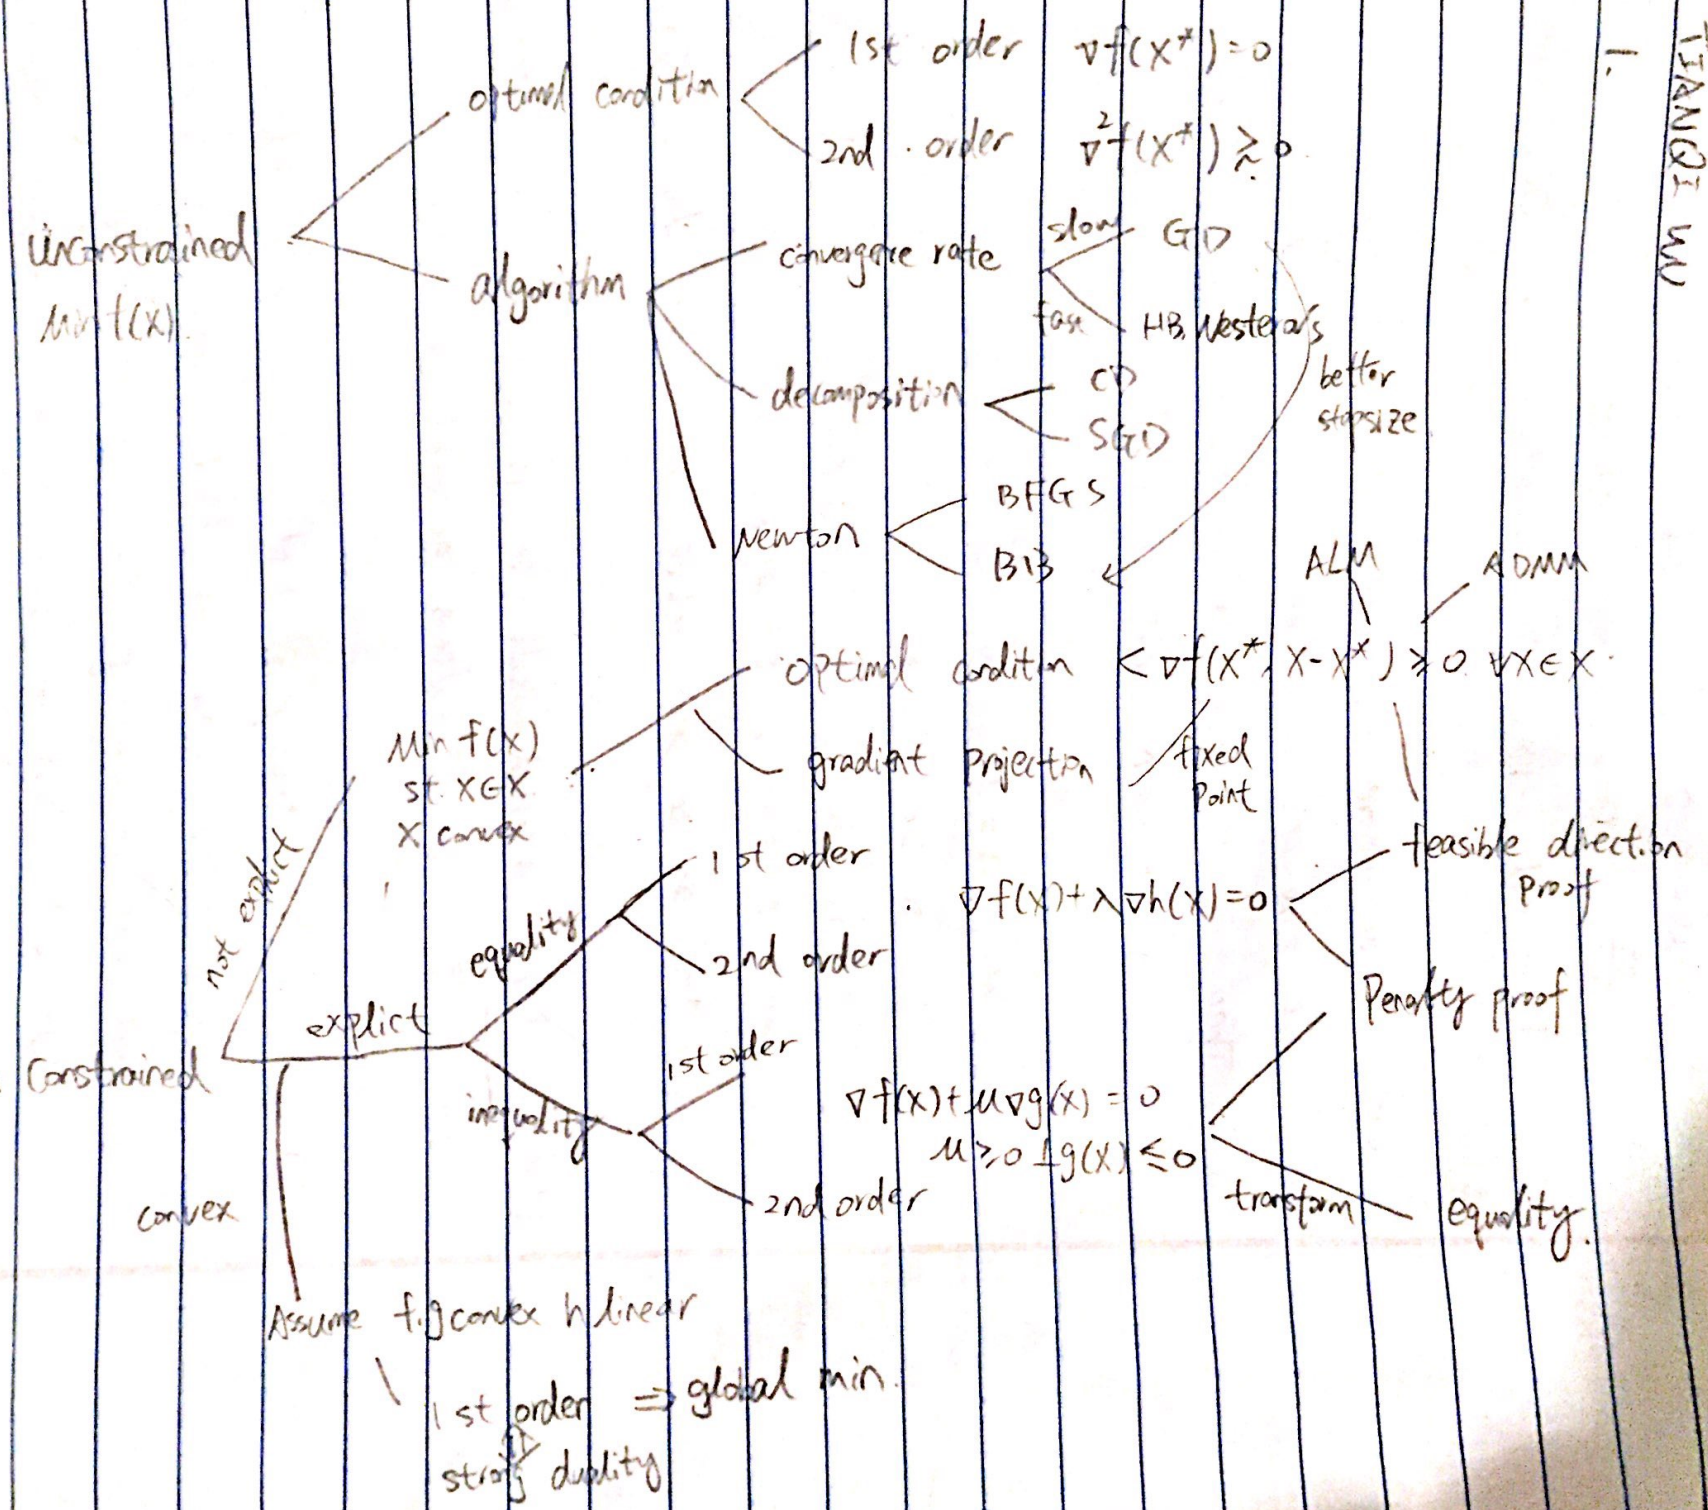 TIANQI WU
1.
Unconstrained
Min f(x)
optimal condition
1st order ∇f(x*)=0
2nd order ∇²f(x*) ≽ 0
algorithm
convergence rate
slow GD
fast HB. Nesterov's
better
stepsize
decomposition
CD
SGD
Newton
BFGS
BB
ALM
ADMM
optimal condition <∇f(x*, x-x*) ≥ 0 ∀x∈X
gradient projection
fixed
point
Min f(x)
st. x∈X
X convex
not explict
Constrained
explict
equality
1st order
2nd order
∇f(x)+λ∇h(x)=0
feasible direction
proof
Penalty proof
inequality
1st order
2nd order
∇f(x)+μ∇g(x) = 0
μ≥0 ⊥g(x) ≤0
transform
equality.
convex
Assume f.g convex h linear
1st order ⇒ global min.
⇑
strong duality